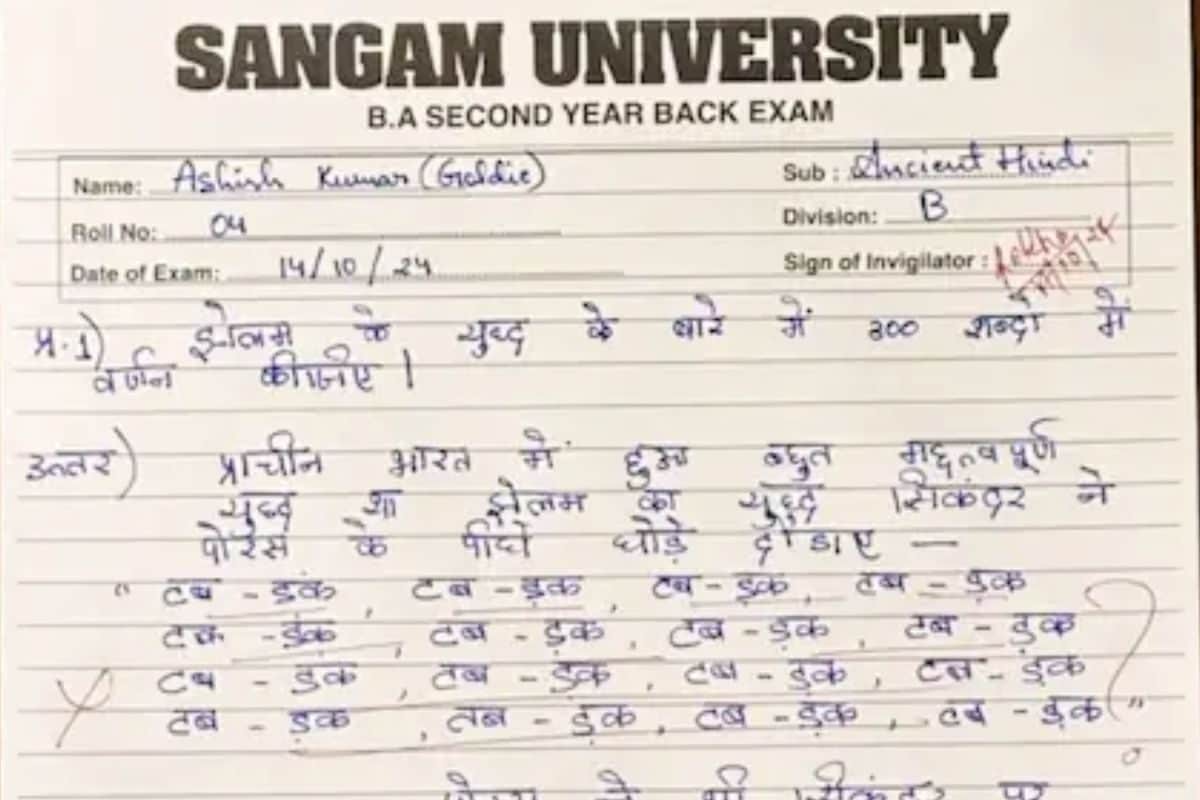 SANGAM UNIVERSITY
B.A SECOND YEAR BACK EXAM
Name: Ashish Kumar (Goldie)
Sub : Ancient Hindi
Roll No: 04
Division: B
Date of Exam: 14/10/24
Sign of Invigilator :
प्र.1) झेलम के युद्ध के बारे में 300 शब्दों में
वर्णन कीजिए।
उत्तर) प्राचीन भारत में हुआ बहुत महत्वपूर्ण
युद्ध था झेलम का युद्ध सिकंदर ने
पोरस के पीछे घोड़े दौडाए —
" टब - ड़क, टब - ड़क, टब - ड़क, टब - ड़क
टक - ड़क, टब - ड़क, टब - ड़क, टब - ड़क
टब - ड़क, तब - ड़क, टब - ड़क, टब - ड़क
टब - ड़क, तब - ड़क, टब - ड़क, टब - ड़क "
?
ने भी पर